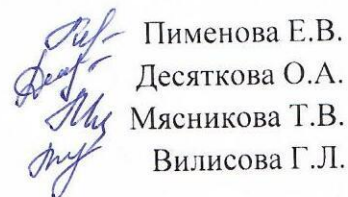 Пименова Е.В.
Десяткова О.А.
Мясникова Т.В.
Вилисова Г.Л.